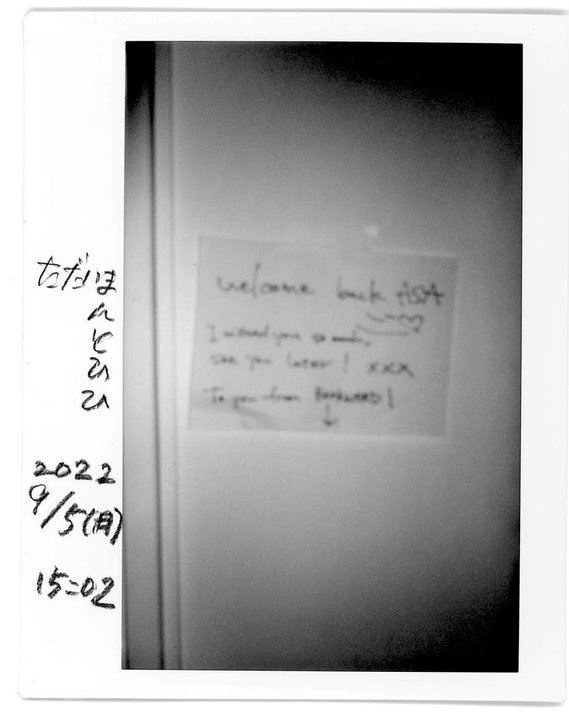 2022
9/5(月)
15:02
welcome back ASA
I missed you so much,
see you later! xxx
To you from